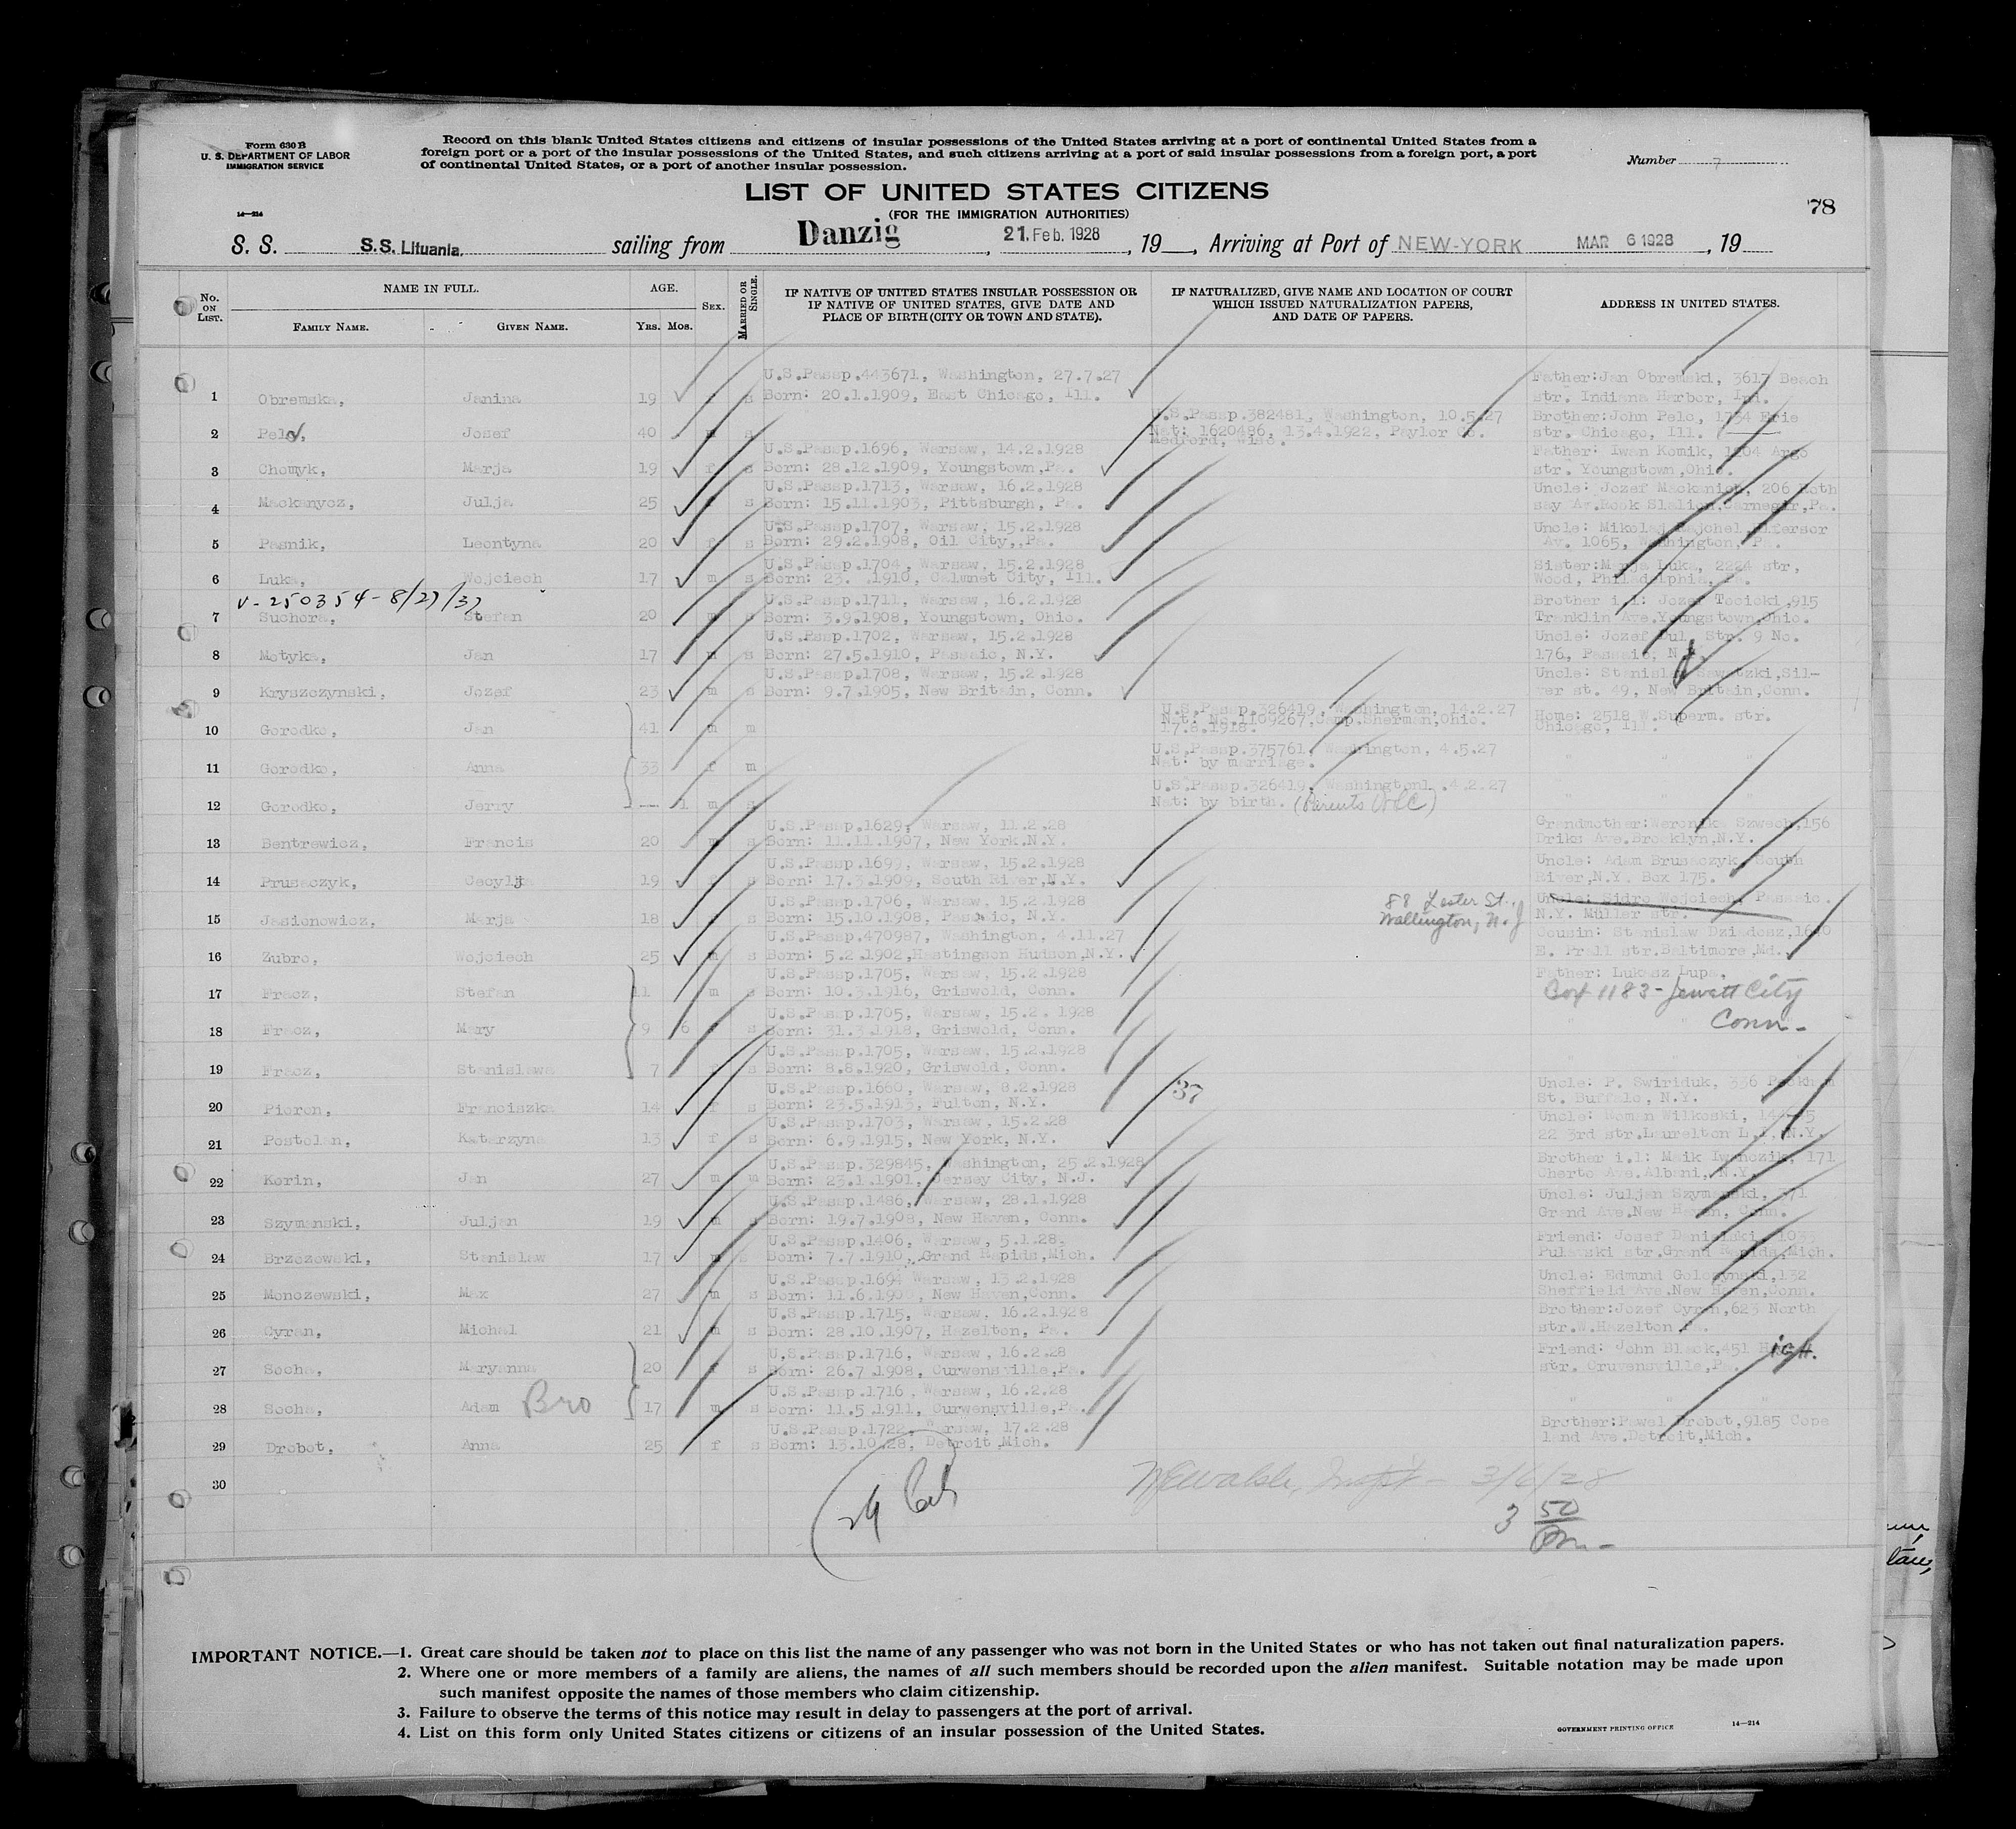 Form 630 B
U. S. DEPARTMENT OF LABOR
IMMIGRATION SERVICE
14—214
Record on this blank United States citizens and citizens of insular possessions of the United States arriving at a port of continental United States from a
foreign port or a port of the insular possessions of the United States, and such citizens arriving at a port of said insular possessions from a foreign port, a port
of continental United States, or a port of another insular possession.
Number 7
LIST OF UNITED STATES CITIZENS
(FOR THE IMMIGRATION AUTHORITIES)
78
S. S. S.S. Lituania. sailing from Danzig, 21. Feb. 1928, 19__, Arriving at Port of NEW-YORK MAR 6 1928, 19
No. ON LIST.
NAME IN FULL.
FAMILY NAME. GIVEN NAME.
AGE.
YRS. MOS.
SEX.
MARRIED OR SINGLE.
IF NATIVE OF UNITED STATES INSULAR POSSESSION OR
IF NATIVE OF UNITED STATES, GIVE DATE AND
PLACE OF BIRTH (CITY OR TOWN AND STATE).
IF NATURALIZED, GIVE NAME AND LOCATION OF COURT
WHICH ISSUED NATURALIZATION PAPERS,
AND DATE OF PAPERS.
ADDRESS IN UNITED STATES.
U.S.Passp.443671, Washington, 27.7.27 Father:Jan Obremski, 3617 Beach
1 Obremska, Janina 19 s Born: 20.1.1909, East Chicago, Ill. str. Indiana Harbor, Ind.
U.S.Passp.382481, Washington, 10.5.27 Brother:John Pelc, 1734 Erie
2 Josef 40 m s Nat: 1620486, 13.4.1922, Paylor Co. str. Chicago, Ill.
Medford, Wisc.
U.S.Passp.1696, Warsaw, 14.2.1928 Father: Iwan Komik, 1204 Argo
3 Chomyk, Marja 19 f s Born: 28.12.1909, Youngstown,Pa. str. Youngstown,Ohio.
U.S.Passp.1713, Warsaw, 16.2.1928 Uncle: Jozef Mackanicz, 206
4 Mackanycz, Julja 25 s Born: 15.11.1903, Pittsburgh, Pa. say Av.
U.S.Passp.1707, Warsaw, 15.2.1928 Uncle: Mikolaj
5 Pasnik, Leontyna 20 f s Born: 29.2.1908, Oil City,,Pa. Av. 1065, Washington, Pa.
U.S.Passp.1704, Warsaw, 15.2.1928 Sister:Marja Luka, 2224 str,
6 Luka, Wojciech 17 m s Born: 23. .1910, Calumet City, Ill. Wood, Philadelphia, Pa.
V-250354-8/27/37
U.S.Passp.1711, Warsaw, 16.2.1928 Brother i.l: Jozef Tocicki,915
7 Suchora, Stefan 20 m s Born: 3.9.1908, Youngstown, Ohio. Franklin Ave.Youngstown,Ohio.
U.S.Passp.1702, Warsaw, 15.2.1928 Uncle: Jozef Str. 9 No.
8 Motyka, Jan 17 m s Born: 27.5.1910, Passaic, N.Y. 176, Passaic, N.J.
U.S.Passp.1708, Warsaw, 15.2.1928 Uncle: Stanislaw Sawatzki,Sil-
9 Kryszczynski, Jozef 23 m s Born: 9.7.1905, New Britain, Conn. ver st. 49, New Britain,Conn.
U.S.Passp.326419, Washington, 14.2.27
10 Gorodko, Jan 41 m m Nat: No.1109267,Camp.Sherman,Ohio. Home: 2518 W.Superm. str.
17.6.1918. Chicago, Ill.
U.S.Passp.375761, Washington, 4.5.27
11 Gorodko, Anna 33 f m Nat: by marriage. " " "
U.S.Passp.326419, Washington1.4.2.27
12 Gorodko, Jerry — 1 m s Nat: by birth. (Parents " " "
U.S.Passp.1629, Warsaw, 11.2.28 Grandmother:Weronika Szwech,156
13 Bentrewicz, Francis 20 m s Born: 11.11.1907, New York,N.Y. Driks Ave.Brooklyn,N.Y.
U.S.Passp.1699, Warsaw, 15.2.1928 Uncle: Adam Brusaczyk, South
14 Prusaczyk, Cecylja 19 s Born: 17.3.1909, South River,N.Y. River,N.Y. Box 175.
U.S.Passp.1706, Warsaw, 15.2.1928 88 Lester St., Uncle: Sidro Wojciech, Passaic.
15 Jasionowicz, Marja 18 s Born: 15.10.1908, Passaic, N.Y. Wallington, N.J N.Y. Müller str.
U.S.Passp.470987, Washington, 4.11.27 Cousin: Stanislaw Dziadosz,1640
16 Zubro, Wojciech 25 m s Born: 5.2.1902,Hastingson Hudson,N.Y. E. Prall str.Baltimore,Md.
U.S.Passp.1705, Warsaw, 15.2.1928 Father: Lukasz Lupa,
17 Fracz, Stefan 11 m s Born: 10.3.1916, Griswold, Conn. Box 1183 - Jewett City
U.S.Passp.1705, Warsaw, 15.2. 1928 Conn-
18 Fracz, Mary 9 6 s Born: 31.3.1918, Griswold, Conn.
U.S.Passp.1705, Warsaw, 15.2.1928
19 Fracz, Stanislawa 7 s Born: 8.8.1920, Griswold, Conn. "
U.S.Passp.1660, Warsaw, 8.2.1928 37 Uncle: P. Swiriduk, 336
20 Pioron, Franciszka 14 f s Born: 23.5.1913, Fulton, N.Y. St. Buffalo, N.Y.
U.S.Passp.1703, Warsaw, 15.2.28 Uncle: Roman Wilkoski,
21 Postolan, Katarzyna 13 f s Born: 6.9.1915, New York, N.Y. 22 3rd str.Laurelton L.I. N.Y.
U.S.Passp.329845, Washington, 25.2.1928 Brother i.l: Maik Iwanczik, 171
22 Korin, Jan 27 m m Born: 23.1.1901, Jersey City, N.J. Cherto Ave.Albani, N.Y.
U.S.Passp.1486, Warsaw, 28.1.1928 Uncle: Juljan Szymanski, 171
23 Szymanski, Juljan 19 m s Born: 19.7.1908, New Haven, Conn. Grand Ave.New Haven, Conn.
U.S.Passp.1406, Warsaw, 5.1.28. Friend: Josef Danielski, 1033
24 Brzezewski, Stanislaw 17 m s Born: 7.7.1910, Grand Rapids,Mich. Pulavski str.Grand Rapids,Mich.
U.S.Passp.1694 Warsaw, 13.2.1928 Uncle: Edmund Golozynski,132
25 Monczewski, Max 27 m s Born: 11.6.190, New Haven,Conn. Sheffield Ave.New Haven,Conn.
U.S.Passp.1715, Warsaw, 16.2.1928 Brother:Jozef Cyran,623 North
26 Cyran, Michal 21 m s Born: 28.10.1907, Hazelton, Pa. str.W.Hazelton Pa.
U.S.Passp.1716, Warsaw, 16.2.28 Friend: John Black,451 High.
27 Socha, Maryanna 20 f s Born: 26.7.1908, Curwensville,Pa. str. Cruvensville,Pa.
U.S.Passp.1716, Warsaw, 16.2.28
28 Socha, Adam Bro 17 m s Born: 11.5.1911, Curwensville,Pa. " " "
U.S.Passp.1722, Warsaw, 17.2.28 Brother:Pawel Drobot,9185 Cope
29 Drobot, Anna 25 f s Born: 13.10.28, Detroit,Mich. land Ave.Detroit,Mich.
30
3/6/28
3 50
IMPORTANT NOTICE.—1. Great care should be taken not to place on this list the name of any passenger who was not born in the United States or who has not taken out final naturalization papers.
2. Where one or more members of a family are aliens, the names of all such members should be recorded upon the alien manifest. Suitable notation may be made upon
such manifest opposite the names of those members who claim citizenship.
3. Failure to observe the terms of this notice may result in delay to passengers at the port of arrival.
4. List on this form only United States citizens or citizens of an insular possession of the United States.
GOVERNMENT PRINTING OFFICE 14—214